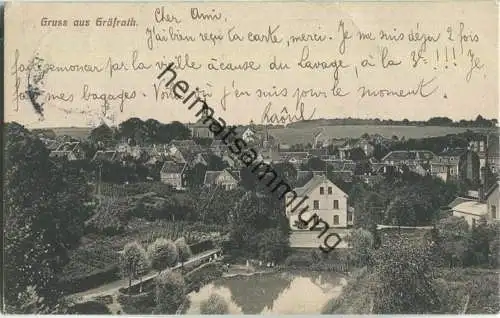 Gruss aus Gräfrath.
Cher Ami,
J'ai bien reçu ta carte, merci. Je me suis déjà 2 fois
fait semoncer par la vieille à cause du lavage, à la 3e !!! Je
fais mes bagages. Voilà j'en suis pour le moment.
Raoul
www.heimatsammlung.de